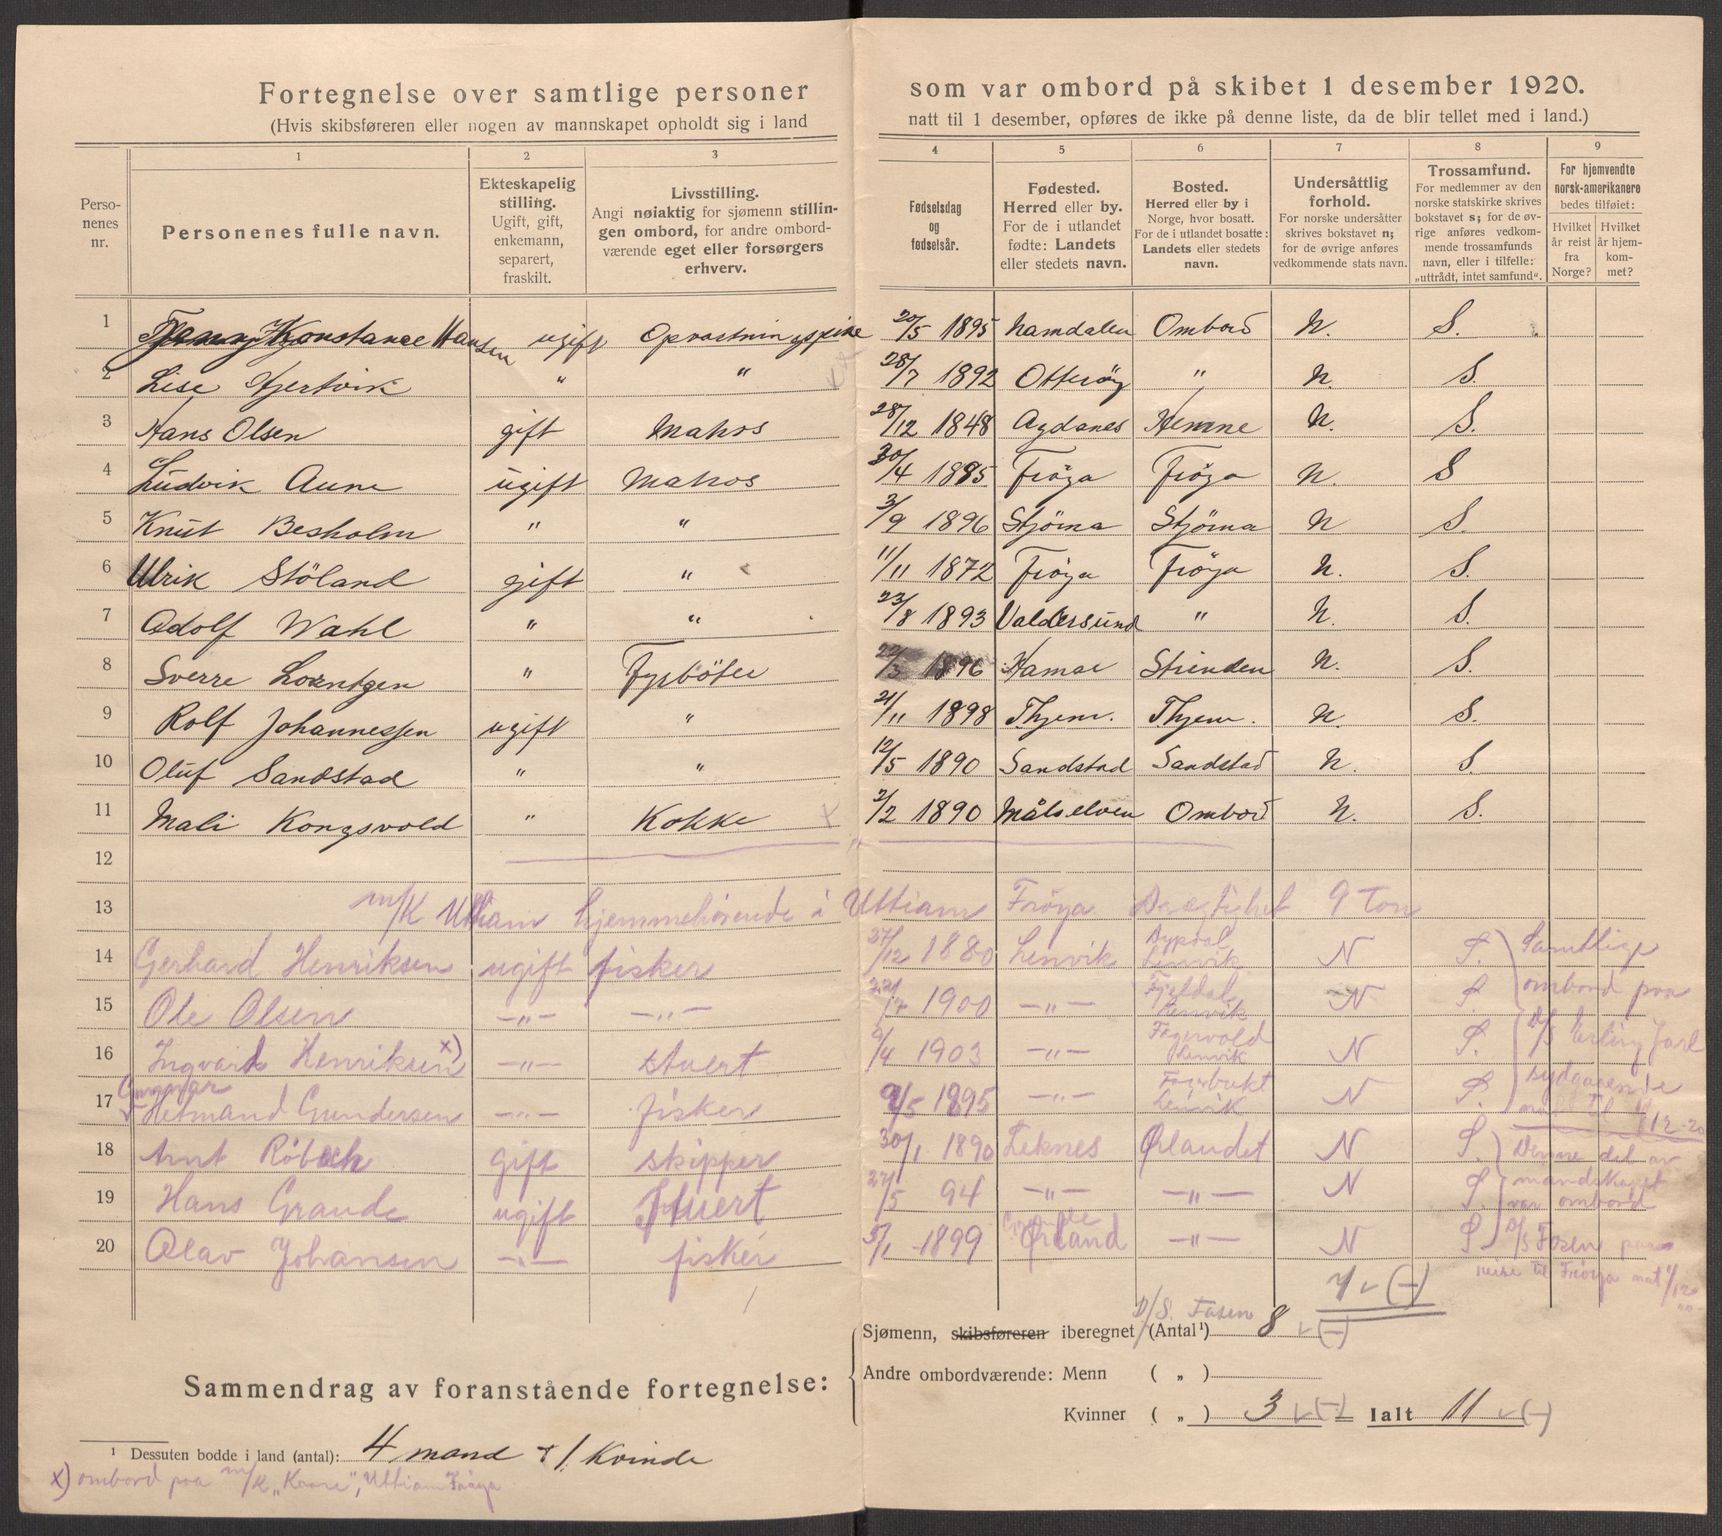 Fortegnelse over samtlige personer som var ombord på skibet 1 desember 1920.
(Hvis skibsføreren eller nogen av mannskapet opholdt sig i land natt til 1 desember, opføres de ikke på denne liste, da de blir tellet med i land.)
1 2 3 4 5 6 7 8 9
Perso-
nenes
nr.
Personenes fulle navn.
Ekteskapelig
stilling.
Ugift, gift,
enkemann,
separert,
fraskilt.
Livsstilling.
Angi nøiaktig for sjømenn stillin-
gen ombord, for andre ombord-
værende eget eller forsørgers
erhverv.
Fødselsdag
og
fødselsår.
Fødested.
Herred eller by.
For de i utlandet
fødte: Landets
eller stedets navn.
Bosted.
Herred eller by i
Norge, hvor bosatt.
For de i utlandet bosatte:
Landets eller stedets
navn.
Undersåttlig
forhold.
For norske undersåtter
skrives bokstavet n;
for de øvrige anføres
vedkommende stats navn.
Trossamfund.
For medlemmer av den
norske statskirke skrives
bokstavet s; for de øv-
rige anføres vedkom-
mende trossamfunds
navn, eller i tilfelle:
„uttrådt, intet samfund“.
For hjemvendte
norsk-amerikanere
bedes tilføiet:
Hvilket
år reist
fra
Norge?
Hvilket
år hjem-
kom-
met?
1 Konstance Hansen ugift Opvartningspike 20/5 1895 Namdalen Ombord N. S.
2 Lise " " 28/7 1892 Otterøy " N. S.
3 Hans Olsen gift Matros 28/12 1848 Agdanes Hemne N. S.
4 Ludvik Aune ugift Matros 30/4 1885 Frøya Frøya N. S
5 Knut Besholm " " 3/9 1896 Stjørna Stjørna N S.
6 Ulrik Støland gift " 11/11 1872 Frøya Frøya N. S.
7 Adolf Wahl " " 23/8 1893 Valdersund " N. S.
8 Sverre Lorntzen " Fyrbøter 22/3 1896 Hamar Strinden N. S.
9 Rolf Johannessen ugift " 21/11 1898 Thjem. Thjem. N. S.
10 Oluf Sandstad " " 12/5 1890 Sandstad Sandstad N. S.
11 Mali Kongsvold " Kokke 2/2 1890 Målselven Ombord N. S.
12
13 m/K Uttian hjemmehørende i Uttian Frøya Drægtighet 9 Ton
14 Gerhard Henriksen ugift fisker 27/12 1880 Lenvik Lenvik N S. Samtlige
15 Ole Olsen —„— —„— 1900 —„— Fjeldal Lenvik N S. ombord paa
16 Ingvard Henriksen x) —„— stuert 9/4 1903 —„— Fagervold Lenvik N S. D/S Erling Jarl
17 Gunnar Hermand Gundersen —„— fisker 9/5 1895 —„— Lenvik N S. sydgaaende
natt til 1/12-20
18 Arnt Röbek gift skipper 30/1 1890 Leknes Ørlandet N S. Denne del av
19 Hans Grande ugift Stuert 27/5 94 —„— —„— N S. mandskapet
var ombord
20 Olav Johansen —„— fisker 5/1 1899 Ørland —„— N S D/S Fosen paa
reise til Frøya nat 1/12 20
7 (–)
D/S. Fosen
Sjømenn, skibsføreren iberegnet (Antal¹) 8 (–)
Andre ombordværende: Menn ( „ )
Kvinner ( „ ) 3 (–) Ialt 11 (–)
Sammendrag av foranstående fortegnelse:
¹ Dessuten bodde i land (antal): 4 mand + 1. Kvinde
x) ombord paa m/K „Kaare", Uttian Frøya